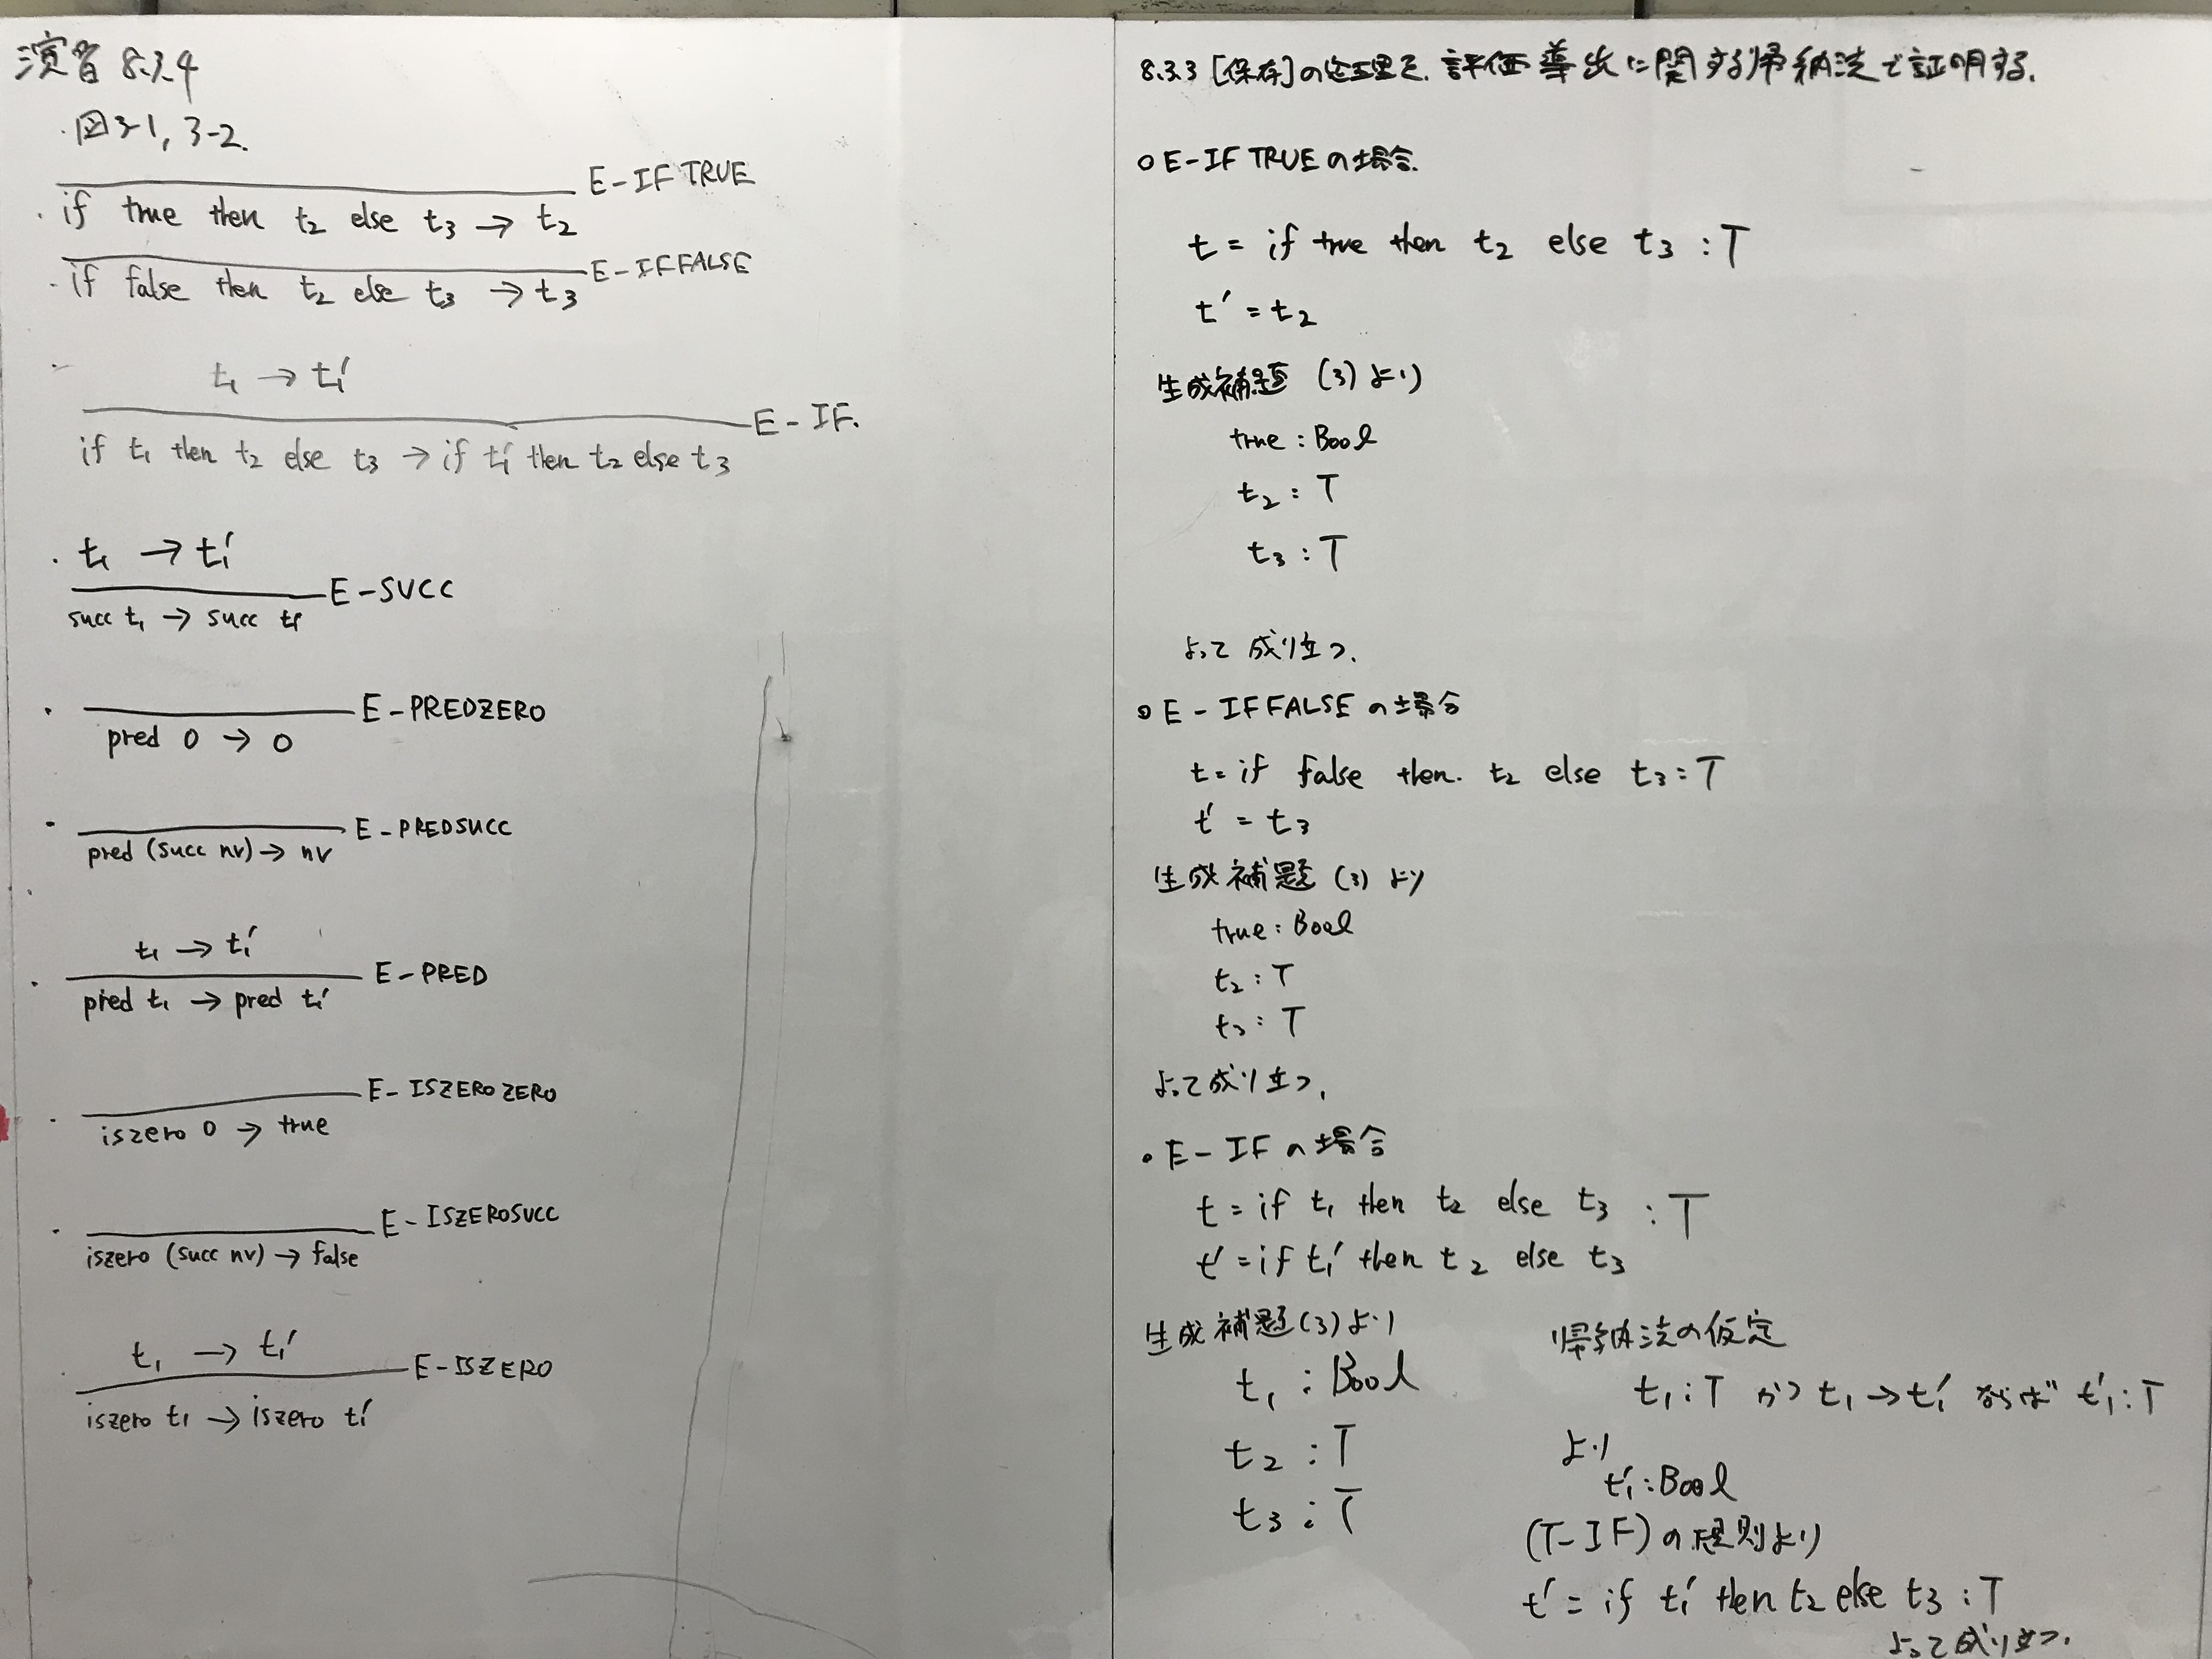 演習 8.3.4
・図3-1, 3-2.
E-IF TRUE
・if true then t₂ else t₃ → t₂
E-IFFALSE
・if false then t₂ else t₃ → t₃
・ t₁ → t₁′
E-IF.
if t₁ then t₂ else t₃ → if t₁′ then t₂ else t₃
・ t₁ → t₁′
E-SUCC
succ t₁ → succ t₁′
・ E-PREDZERO
pred 0 → 0
・ E-PREDSUCC
pred (succ nv) → nv
t₁ → t₁′
・ E-PRED
pred t₁ → pred t₁′
・ E-ISZEROZERO
iszero 0 → true
・ E-ISZEROSUCC
iszero (succ nv) → false
t₁ → t₁′
E-ISZERO
iszero t₁ → iszero t₁′
8.3.3 [保存]の定理を、評価導出に関する帰納法で証明する.
○ E-IF TRUE の場合.
t = if true then t₂ else t₃ : T
t′ = t₂
生成補題 (3) より
true : Bool
t₂ : T
t₃ : T
よって 成り立つ.
○ E-IFFALSE の場合
t = if false then. t₂ else t₃ : T
t′ = t₃
生成補題 (3) より
true : Bool
t₂ : T
t₃ : T
よって成り立つ.
○ E-IF の場合
t = if t₁ then t₂ else t₃ : T
t′ = if t₁′ then t₂ else t₃
生成補題(3)より
t₁ : Bool
t₂ : T
t₃ : T
帰納法の仮定
t₁ : T かつ t₁ → t₁′ ならば t₁′ : T
より
t₁′ : Bool
(T-IF) の規則より
t′ = if t₁′ then t₂ else t₃ : T
よって成り立つ.